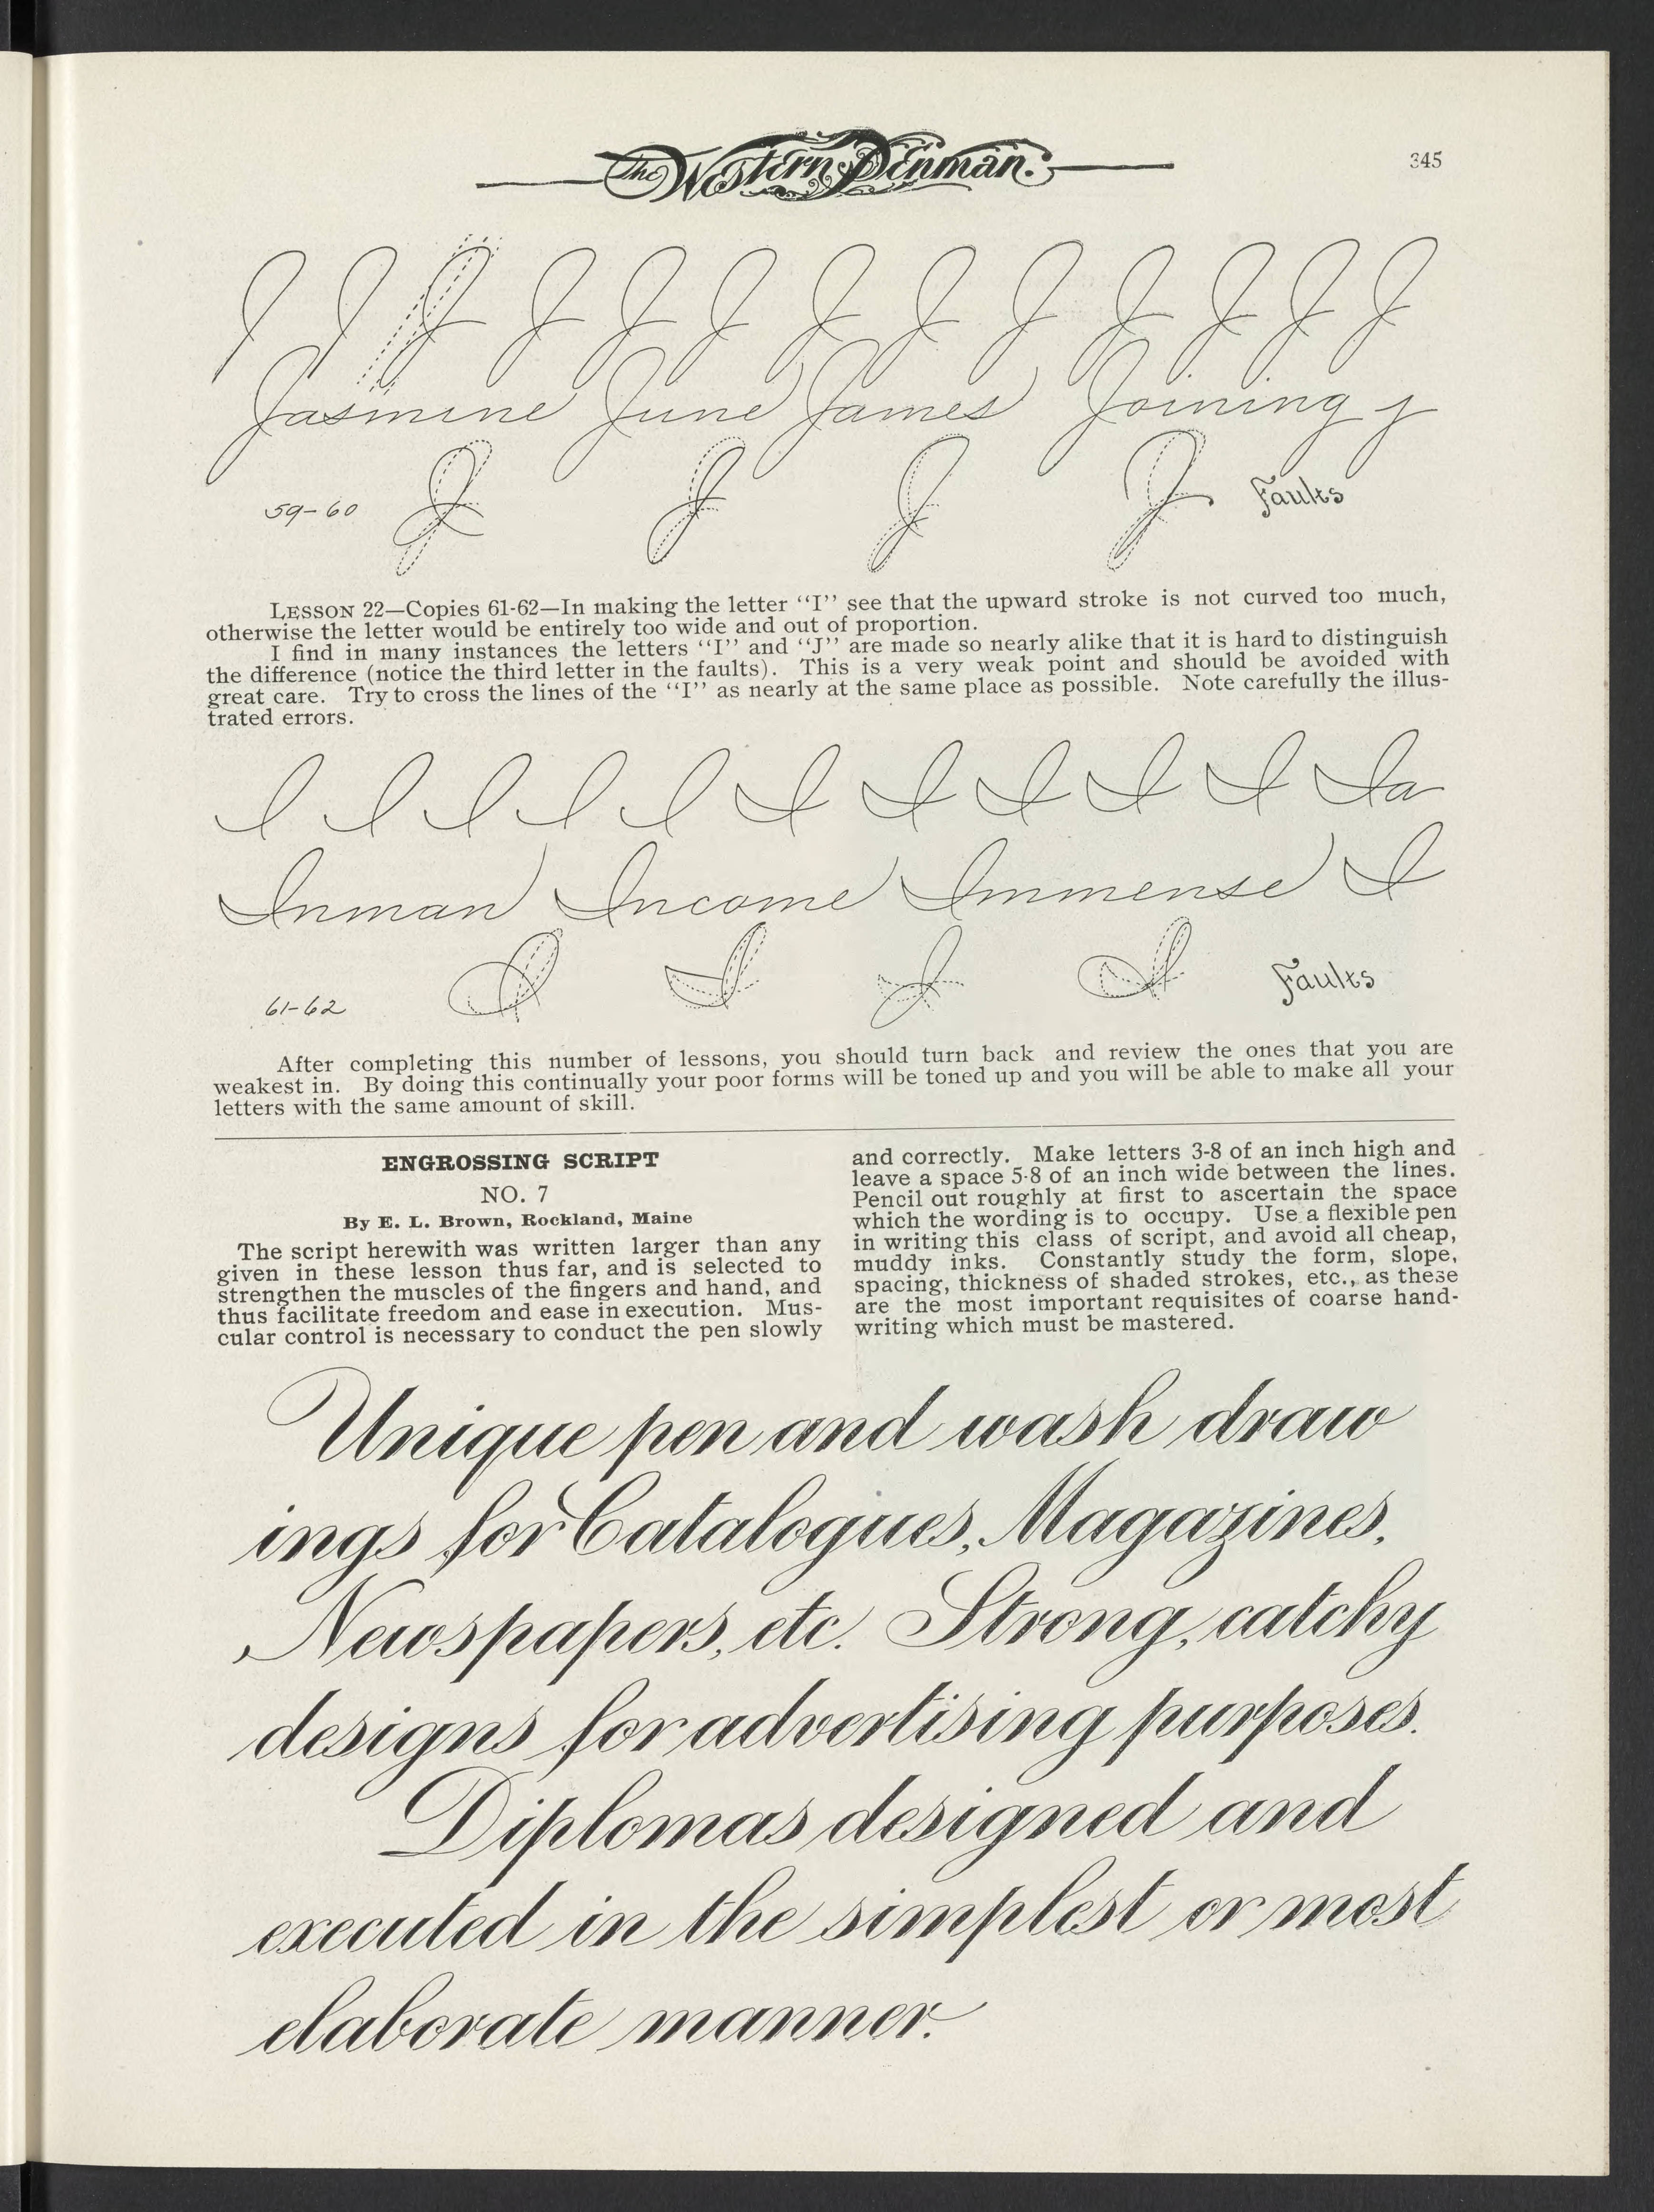 The Western Penman.
345
J J J J J J J J J J J J J
Jasmine June James Joining J
59-60 J J J J Faults
LESSON 22—Copies 61-62—In making the letter "I" see that the upward stroke is not curved too much,
otherwise the letter would be entirely too wide and out of proportion.
I find in many instances the letters "I" and "J" are made so nearly alike that it is hard to distinguish
the difference (notice the third letter in the faults). This is a very weak point and should be avoided with
great care. Try to cross the lines of the "I" as nearly at the same place as possible. Note carefully the illus-
trated errors.
I I I I I I I I I I Ia
Inman Income Immense I
61-62 I I I I Faults
After completing this number of lessons, you should turn back and review the ones that you are
weakest in. By doing this continually your poor forms will be toned up and you will be able to make all your
letters with the same amount of skill.
ENGROSSING SCRIPT
NO. 7
By E. L. Brown, Rockland, Maine
The script herewith was written larger than any
given in these lesson thus far, and is selected to
strengthen the muscles of the fingers and hand, and
thus facilitate freedom and ease in execution. Mus-
cular control is necessary to conduct the pen slowly
and correctly. Make letters 3-8 of an inch high and
leave a space 5-8 of an inch wide between the lines.
Pencil out roughly at first to ascertain the space
which the wording is to occupy. Use a flexible pen
in writing this class of script, and avoid all cheap,
muddy inks. Constantly study the form, slope,
spacing, thickness of shaded strokes, etc., as these
are the most important requisites of coarse hand-
writing which must be mastered.
Unique pen and wash draw
ings for Catalogues, Magazines,
Newspapers, etc. Strong, catchy
designs for advertising purposes.
Diplomas designed and
executed in the simplest or most
elaborate manner.